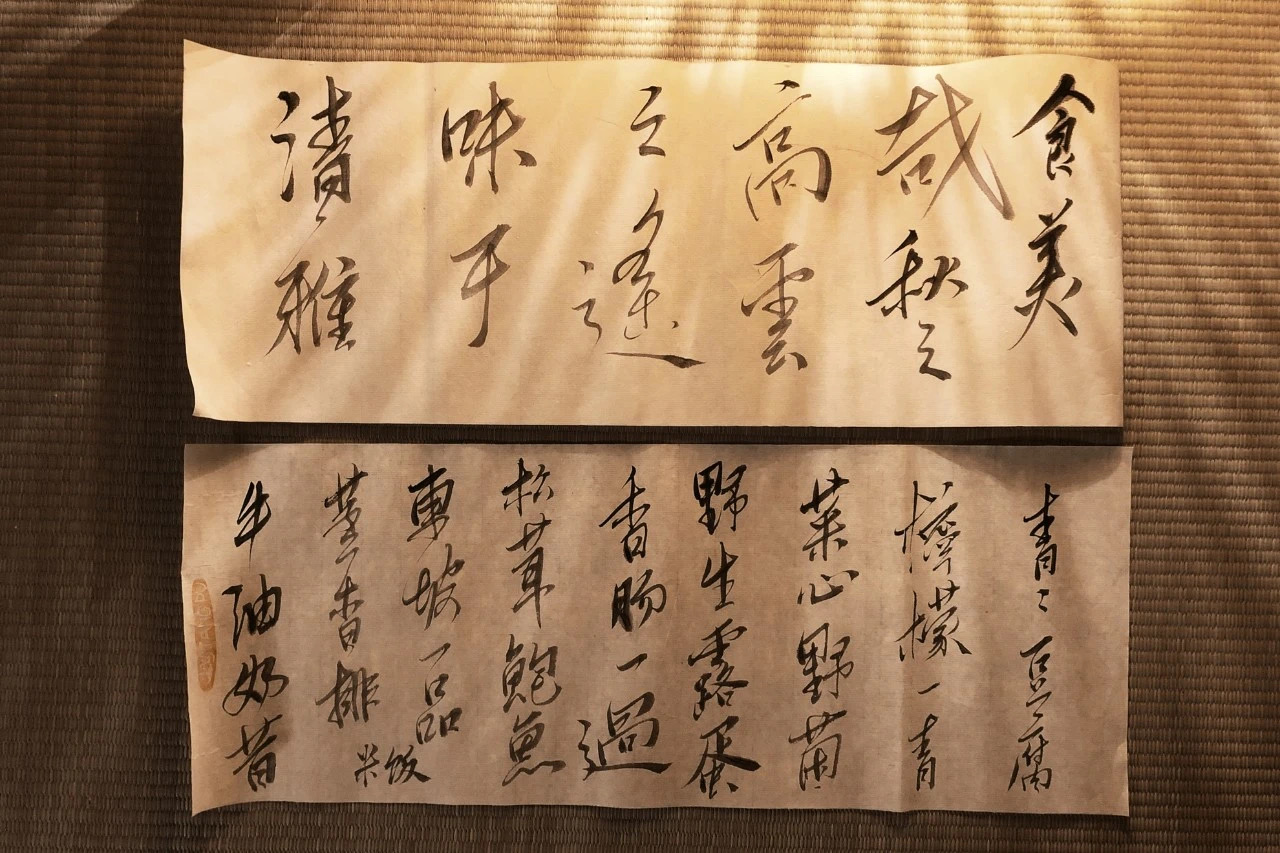 食美
哉秋之
高雲
之遙
味乎
清雅
青〻豆腐
檸檬一青
菜心野菌
野生露蛋
香肠一過
松茸鮑魚
東坡一品
米饭
香排
牛油奶昔